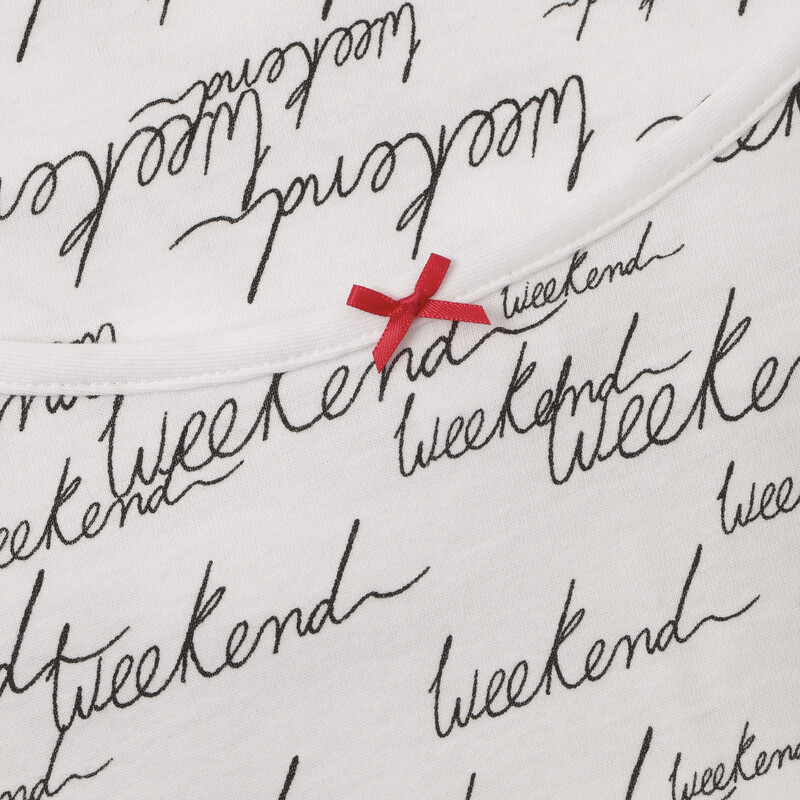 weekend
weekend
weekend
weekend
weekend
weekend
weekend
weekend
weekend
weekend
weekend
weekend
weekend